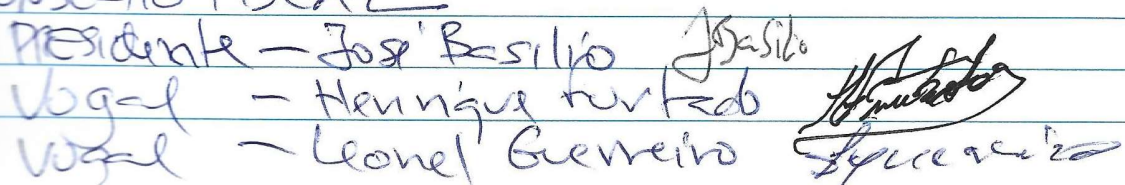 Presidente - José Basilio JBasilio
Vogal - Henrique Furtado
Vogal - Leonel Guerreiro